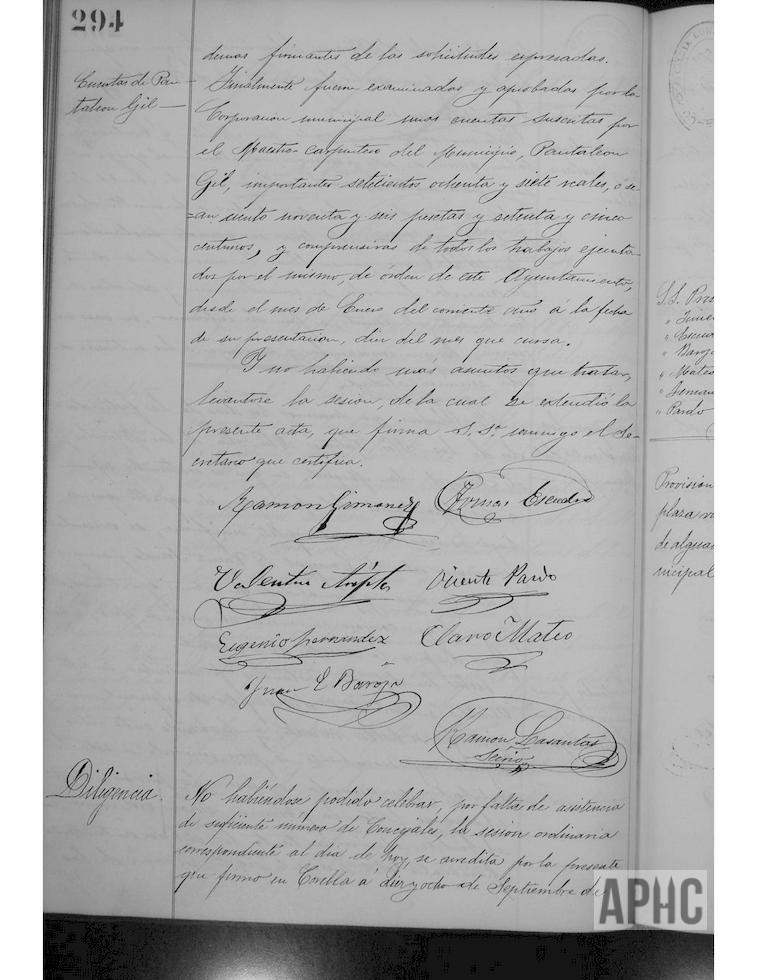 294
demas firmantes de las solicitudes expresadas.
Cuentas de Pan-
taleon Gil —
Finalmente fueron examinadas y aprobadas por la
Corporacion municipal unas cuentas suscritas por
el Maestro carpintero del Municipio, Pantaleon
Gil, importantes setecientos ochenta y siete reales, ó se-
=an ciento noventa y seis pesetas y setenta y cinco
centimos, y comprensivas de todos los trabajos ejecuta-
dos por el mismo, de órden de este Ayuntamiento,
desde el mes de Enero del corriente año á la fecha
de su presentacion, diez del mes que cursa.
Y no habiendo más asuntos que tratar,
levantose la sesion, de la cual se extendió la
presente acta, que firma S. Sª. conmigo el Se-
cretario que certifica.
Ramon Gimenez
Escudero
Valentin
Vicente Pardo
Eugenio Fernandez
Claro Mateo
Juan E Baroja
Ramon Lasantas
Srio
Diligencia.
No habiéndose podido celebrar, por falta de asistencia
de suficiente número de Concejales, la sesion ordinaria
correspondiente al dia de hoy, se acredita por la presente
que firmo en Corella á diez y ocho de Septiembre de
S. S. Pre
" Escu
" Baroja
" Mateo
" Fernan
" Pardo
Provision
plaza va
de algua
nicipal
APHC